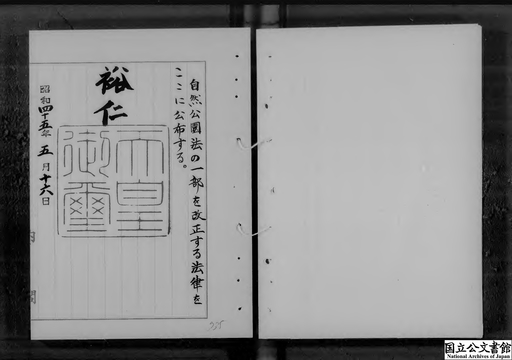 自然公園法の一部を改正する法律を
ここに公布する。
裕仁
天皇
御璽
昭和四十五年五月十六日
内閣
国立公文書館
National Archives of Japan